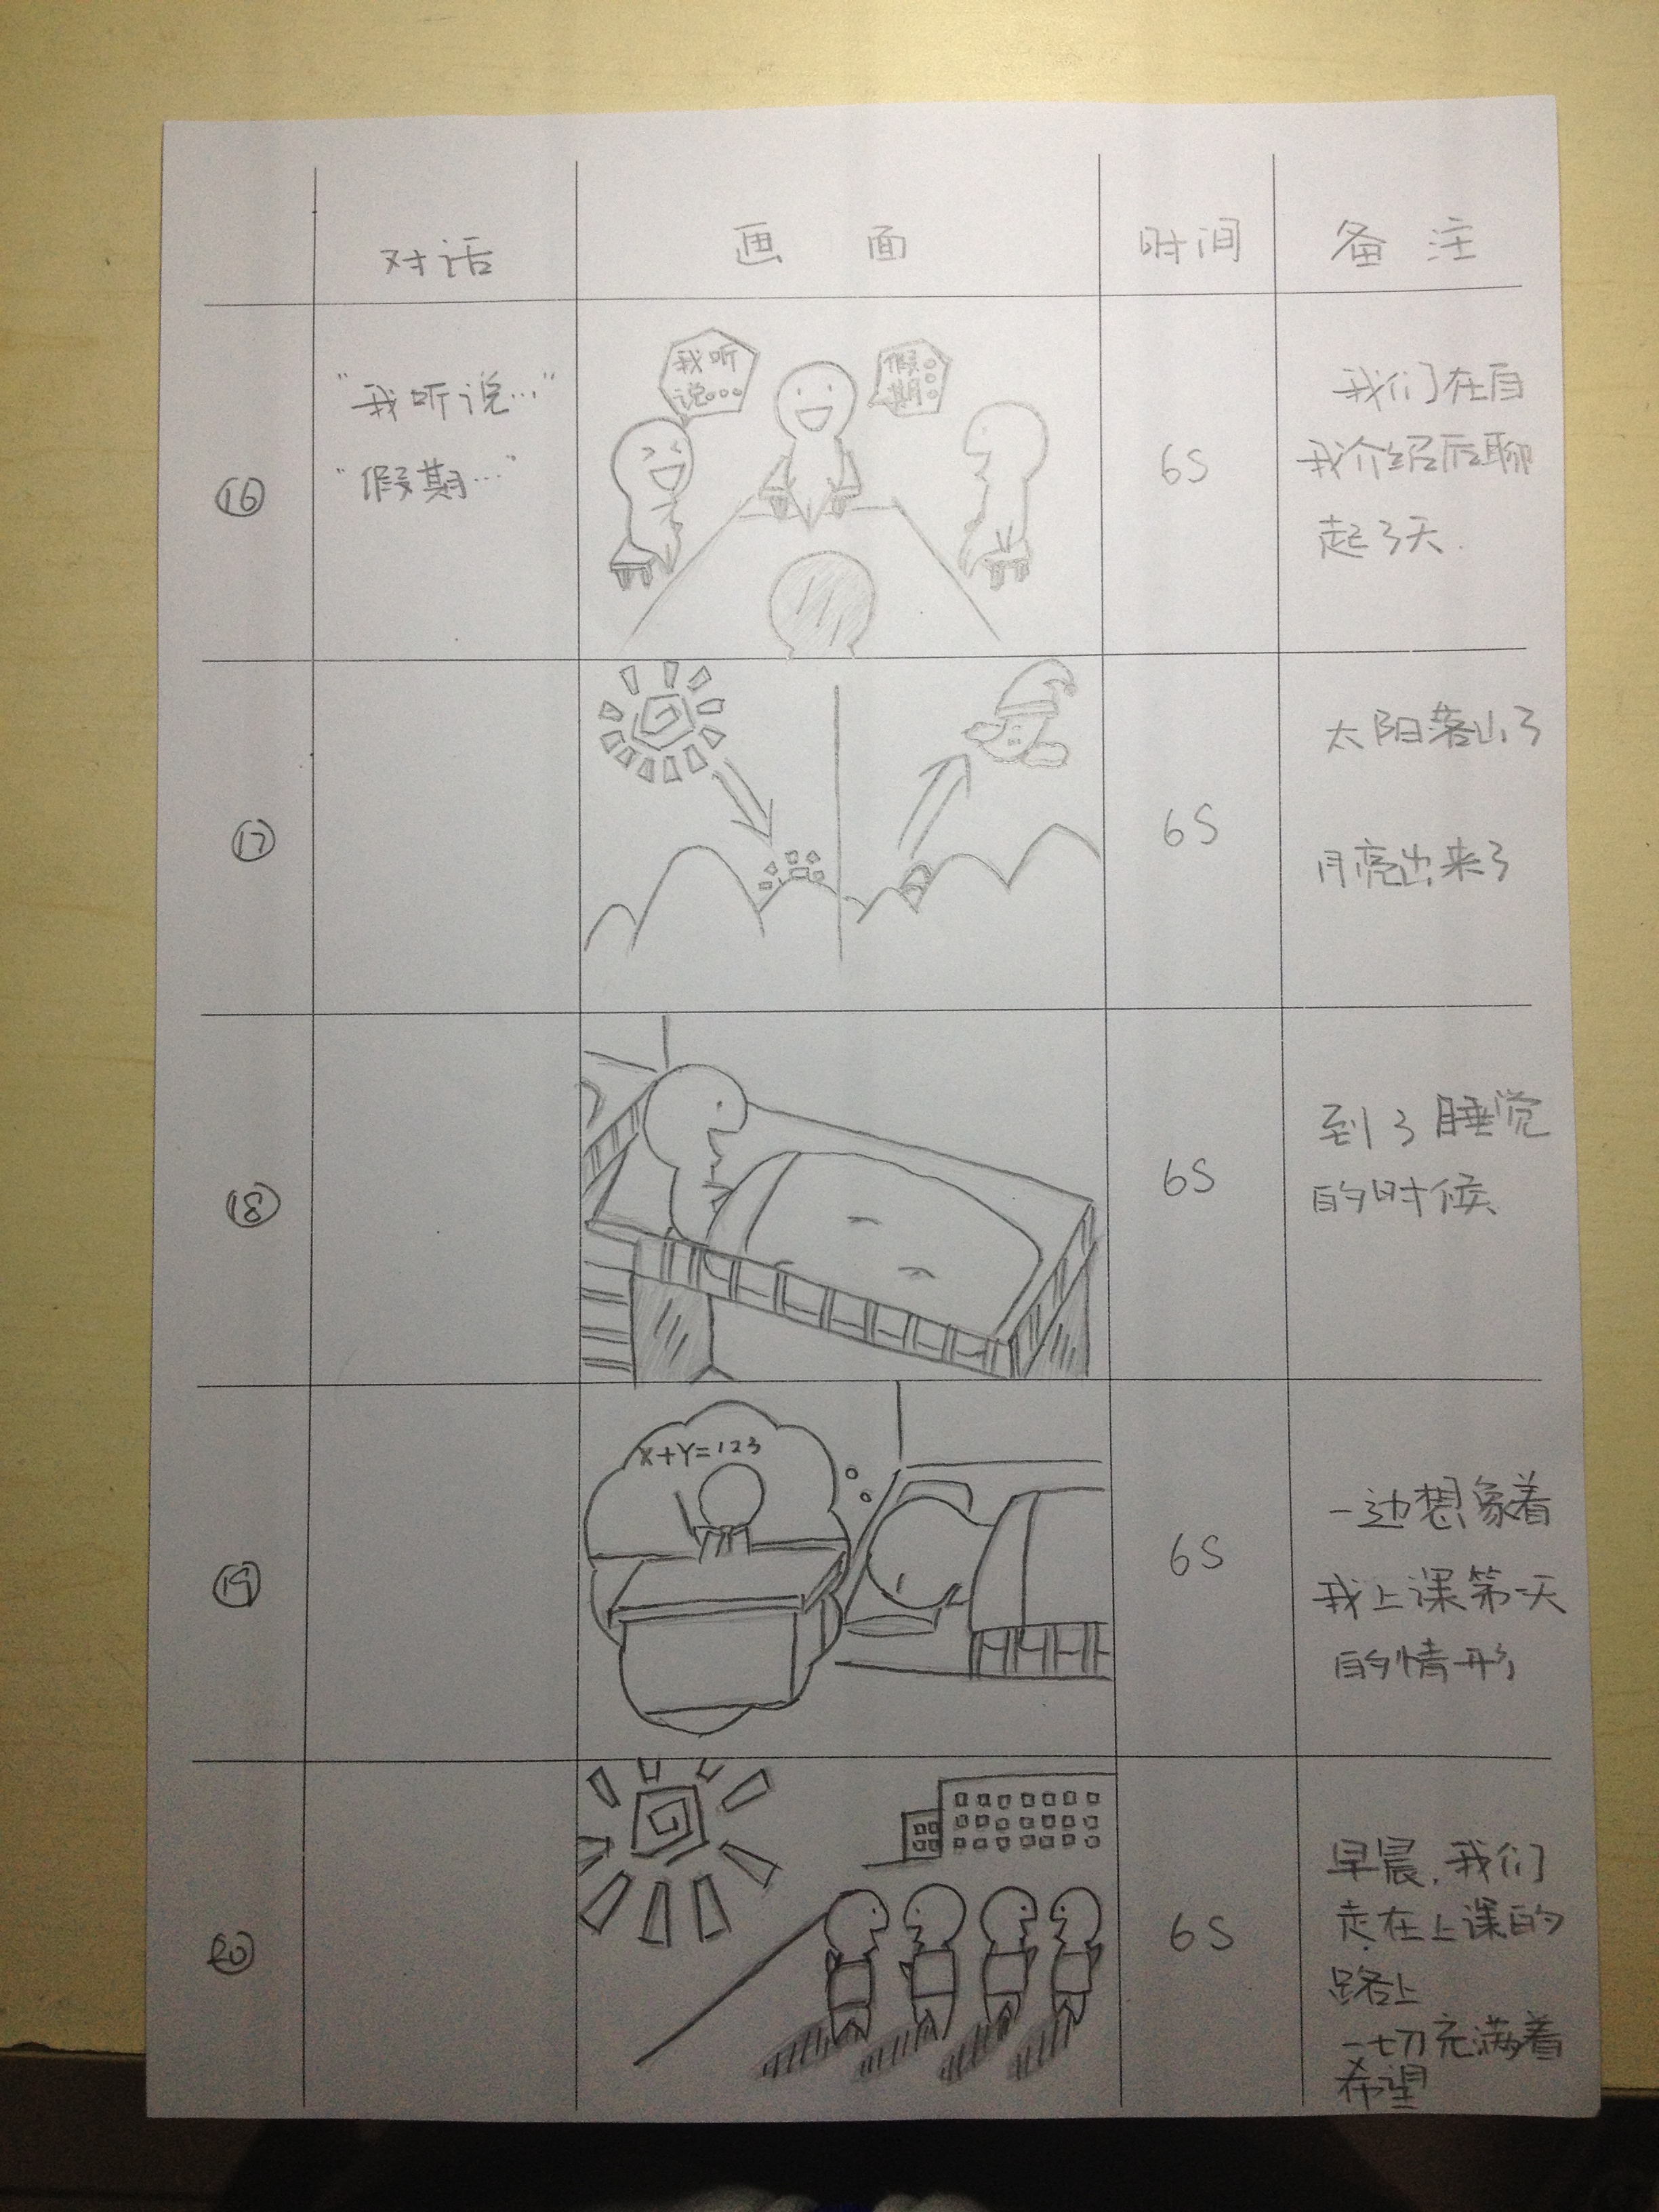 对话 画面 时间 备注
⑯
"我听说…"
"假期…"
我听
说…
假
期…
6S
我们在自
我介绍后聊
起了天.
⑰
6S
太阳落山了
月亮出来了
⑱
6S
到了睡觉
的时候
⑲
X+Y=123
6S
一边想象着
我上课第一天
的情形
⑳
6S
早晨,我们
走在上课的
路上
一切充满着
希望